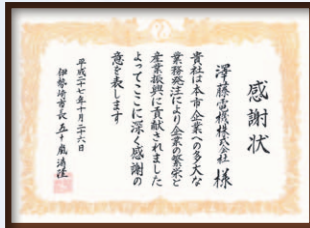 感謝状
澤藤電機株式会社 様
貴社は本市企業への多大な
業務発注により企業の繁栄と
産業振興に貢献されました
よってここに深く感謝の
意を表します
平成二十七年十月二十六日
伊勢崎市長 五十嵐清隆